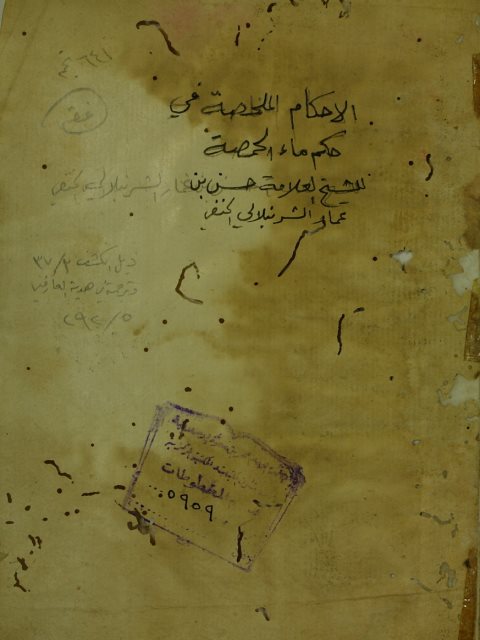 ٦٤١
فقه
الاحكام الملخصة في
حكم ماء الحمصة
للشيخ العلامة حسن بن عمار الشرنبلالي الحنفي
عمار الشرنبلالي الحنفي
ذيل الكشف ٣٧/٣
وترجمته هدية العارفين
٢٩٢/٥
المخطوطات
٥٩٥٩